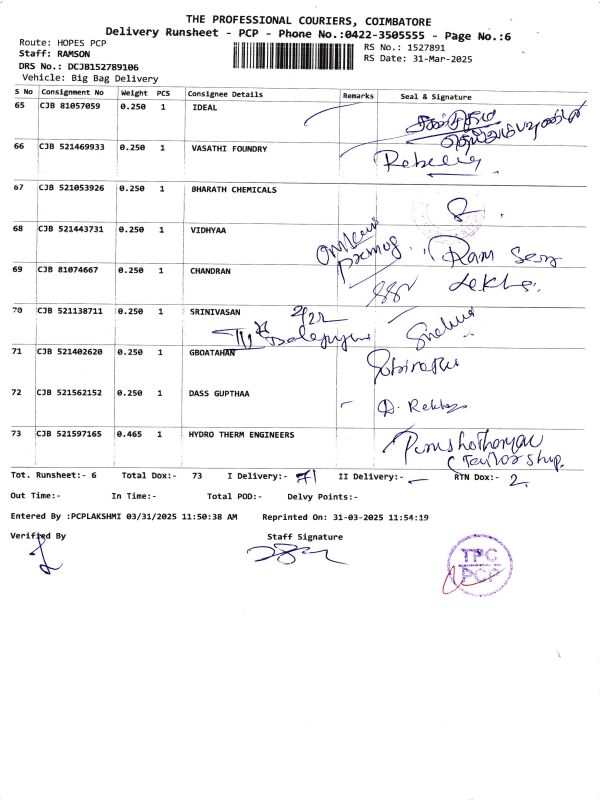 THE PROFESSIONAL COURIERS, COIMBATORE
Delivery Runsheet - PCP - Phone No.:0422-3505555 - Page No.:6
Route: HOPES PCP
RS No.: 1527891
Staff: RAMSON
RS Date: 31-Mar-2025
DRS No.: DCJB152789106
Vehicle: Big Bag Delivery
S No Consignment No Weight PCS Consignee Details Remarks Seal & Signature
65 CJB 81057059 0.250 1 IDEAL
66 CJB 521469933 0.250 1 VASATHI FOUNDRY
67 CJB 521053926 0.250 1 BHARATH CHEMICALS
68 CJB 521443731 0.250 1 VIDHYAA
Ram
69 CJB 81074667 0.250 1 CHANDRAN
70 CJB 521138711 0.250 1 SRINIVASAN
71 CJB 521402620 0.250 1 GBOATAHAN
72 CJB 521562152 0.250 1 DASS GUPTHAA
73 CJB 521597165 0.465 1 HYDRO THERM ENGINEERS
Tot. Runsheet:- 6 Total Dox:- 73 I Delivery:- 71 II Delivery:- - RTN Dox:- 2
Out Time:- In Time:- Total POD:- Delvy Points:-
Entered By :PCPLAKSHMI 03/31/2025 11:50:38 AM Reprinted On: 31-03-2025 11:54:19
Verified By Staff Signature
TPC
PCP